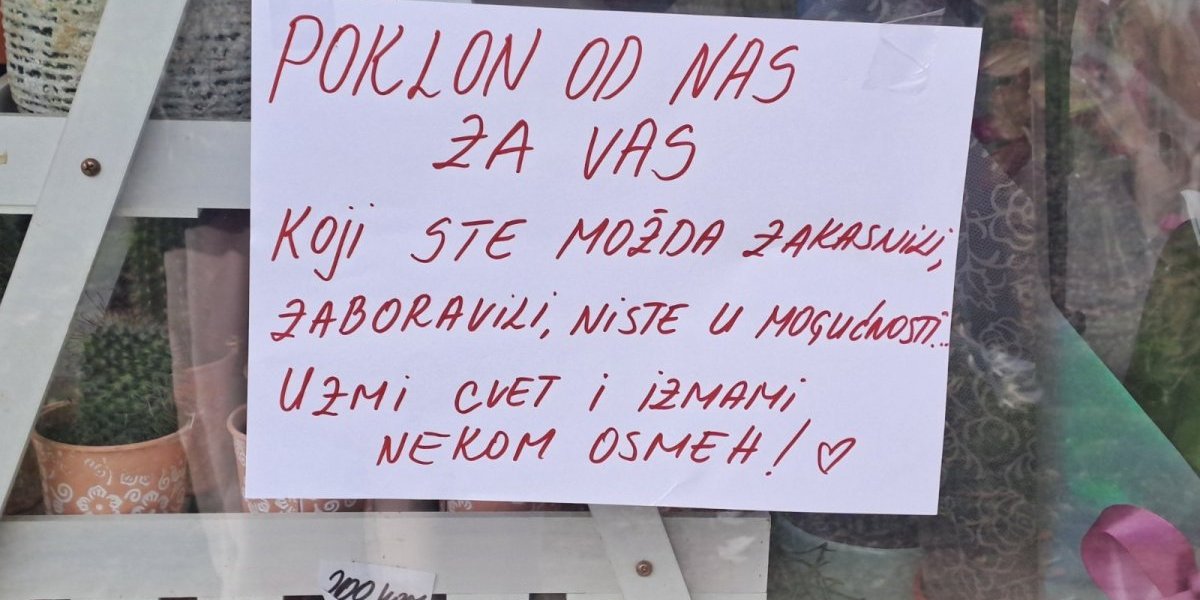 POKLON OD NAS
ZA VAS
KOJI STE MOŽDA ZAKASNILI,
ZABORAVILI, NISTE U MOGUĆNOSTI...
UZMI CVET I IZMAMI
NEKOM OSMEH! ♡